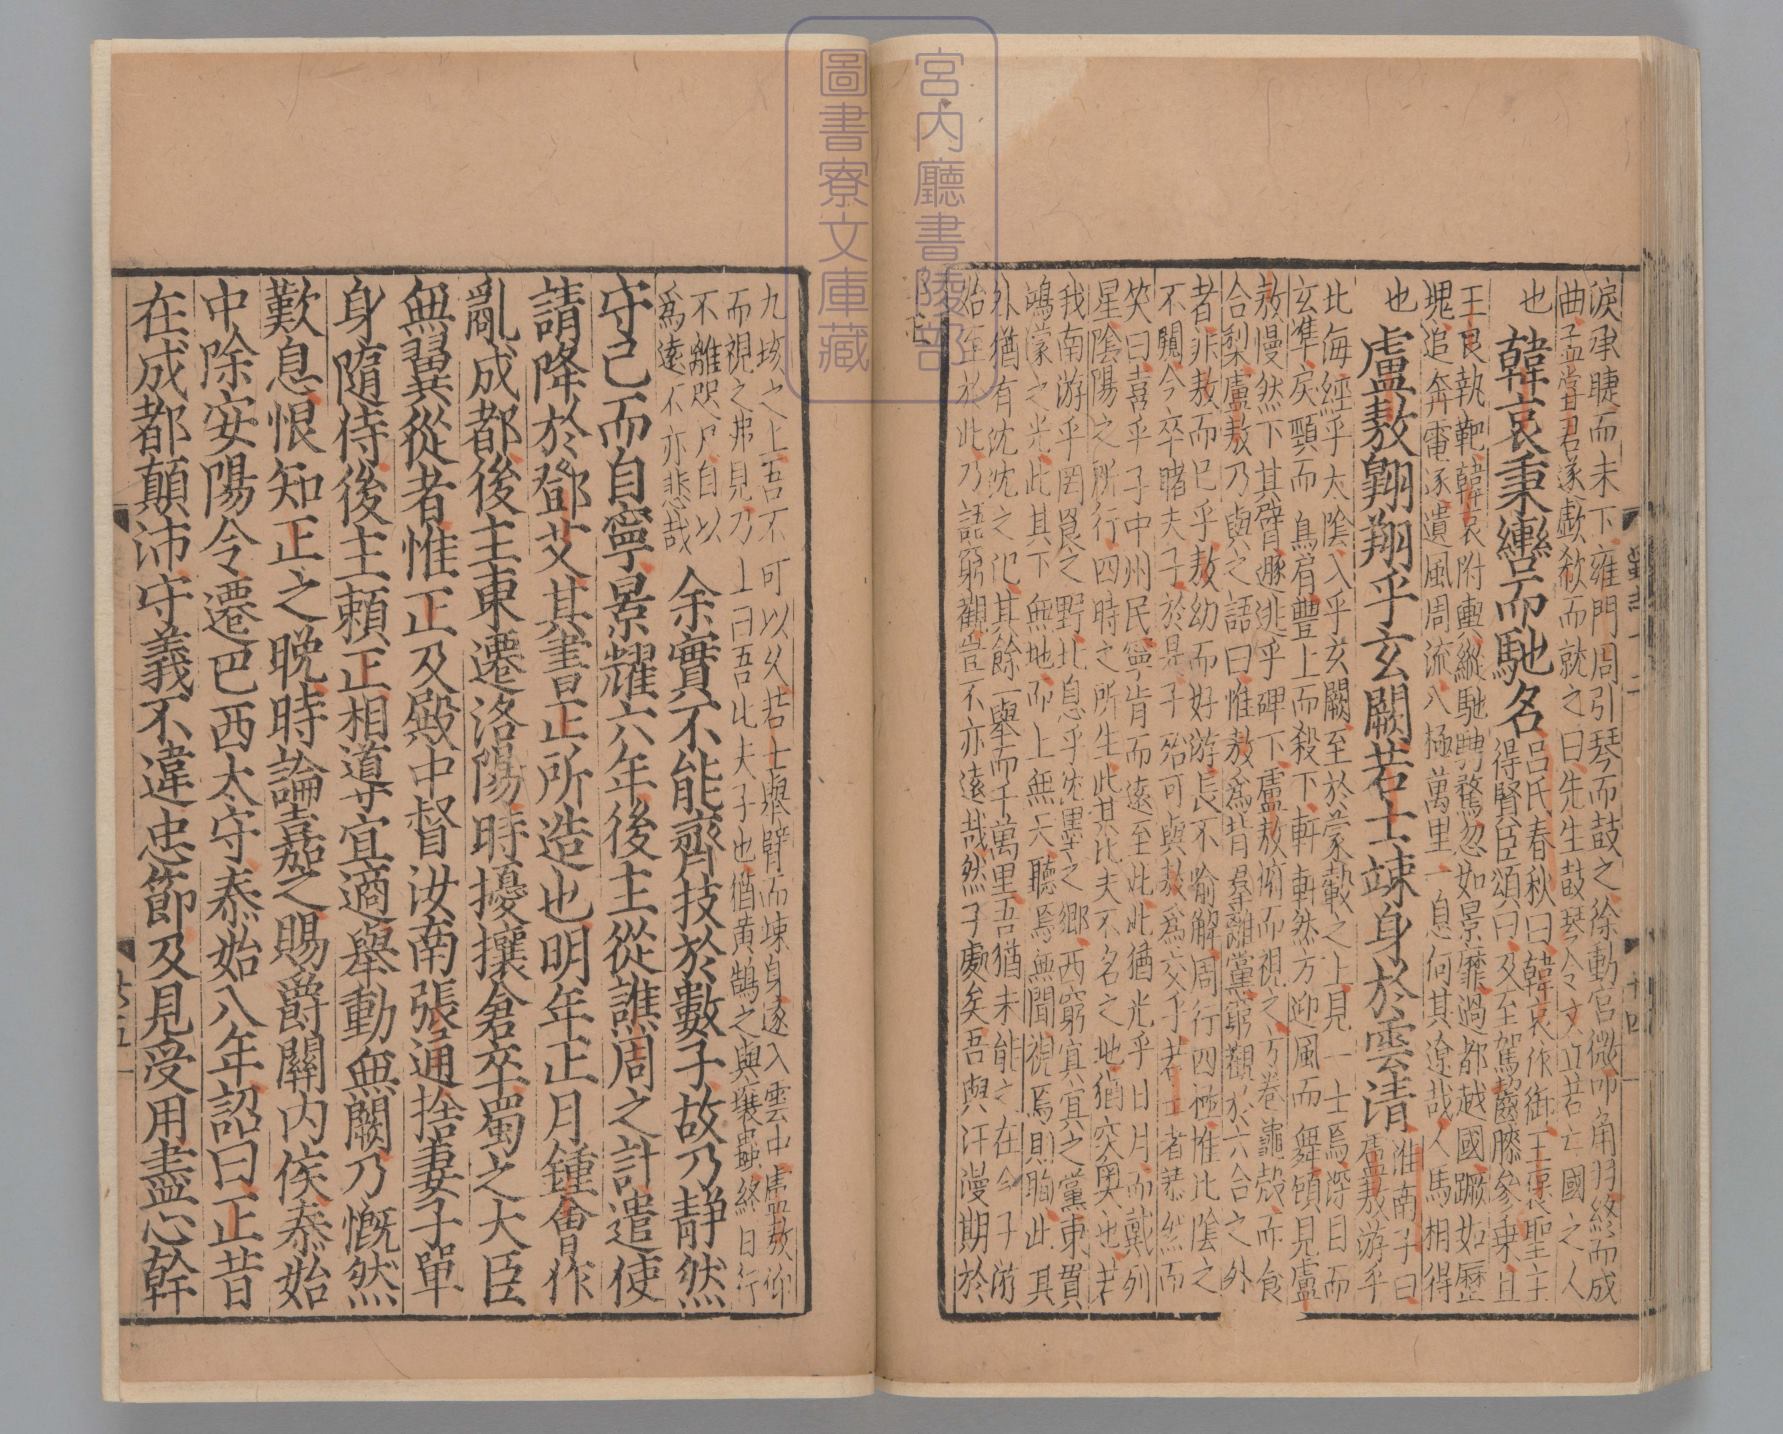 淚承睫而未下雍門周引琴而鼓之徐動宮徵叩角羽終而成
曲孟嘗君遂歔欷而就之曰先生鼓琴令文立若亡國之人
也
韓哀秉轡而馳名
呂氏春秋曰韓哀作御王褒聖主
得賢臣頌曰及至駕齧膝參乘且
王良執靶韓哀附輿縱馳騁騖忽如景靡過都越國蹶如歷
塊追奔電逐遺風周流八極萬里一息何其遼哉人馬相得
也
盧敖翱翔乎玄闕若士竦身於雲清
淮南子曰
盧敖游乎
北海經乎太陰入乎玄闕至於蒙轂之上見一士焉深目而
玄準戾頸而鳥肩豐上而殺下軒軒然方迎風而舞顧見盧
敖慢然下其臂遯逃乎碑下盧敖俯而視之方卷龜殼而食
合梨盧敖乃與之語曰惟敖爲背羣離黨窮觀於六合之外
者非敖而已乎敖幼而好游長不喻解周行四極惟北陰之
不闚今卒睹夫子於是子殆可與敖爲交乎若士者䔳然而
笑曰嘻乎子中州民寧肯而遠至此此猶光乎日月而戴列
星陰陽之所行四時之所生此其比夫不名之地猶突奧也若
我南游乎罔㝗之野北息乎沈墨之鄉西窮冥冥之黨東貫
鴻濛之光此其下無地而上無天聽焉無聞視焉則眴此其
外猶有沈沈之汜其餘一舉而千萬里吾猶未能之在今子游
始至於此乃語窮觀豈不亦遠哉然子處矣吾與汗漫期於
九垓之上吾不可以久若士舉臂而竦身遂入雲中盧敖仰
而視之弗見乃止曰吾比夫子也猶黃鵠之與壤蟲終日行
不離咫尺自以
爲遠不亦悲哉
余實不能齊技於數子故乃靜然
守己而自寧景耀六年後主從譙周之計遣使
請降於鄧艾其書正所造也明年正月鍾會作
亂成都後主東遷洛陽時擾攘倉卒蜀之大臣
無翼從者惟正及殿中督汝南張通捨妻子單
身隨侍後主賴正相導宜適舉動無闕乃慨然
歎息恨知正之晚時論嘉之賜爵關內侯泰始
中除安陽令遷巴西太守泰始八年詔曰正昔
在成都顛沛守義不違忠節及見受用盡心幹
宮内廳書陵部
圖書寮文庫藏